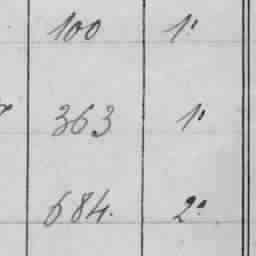 100 1º
363 1º
684. 2º